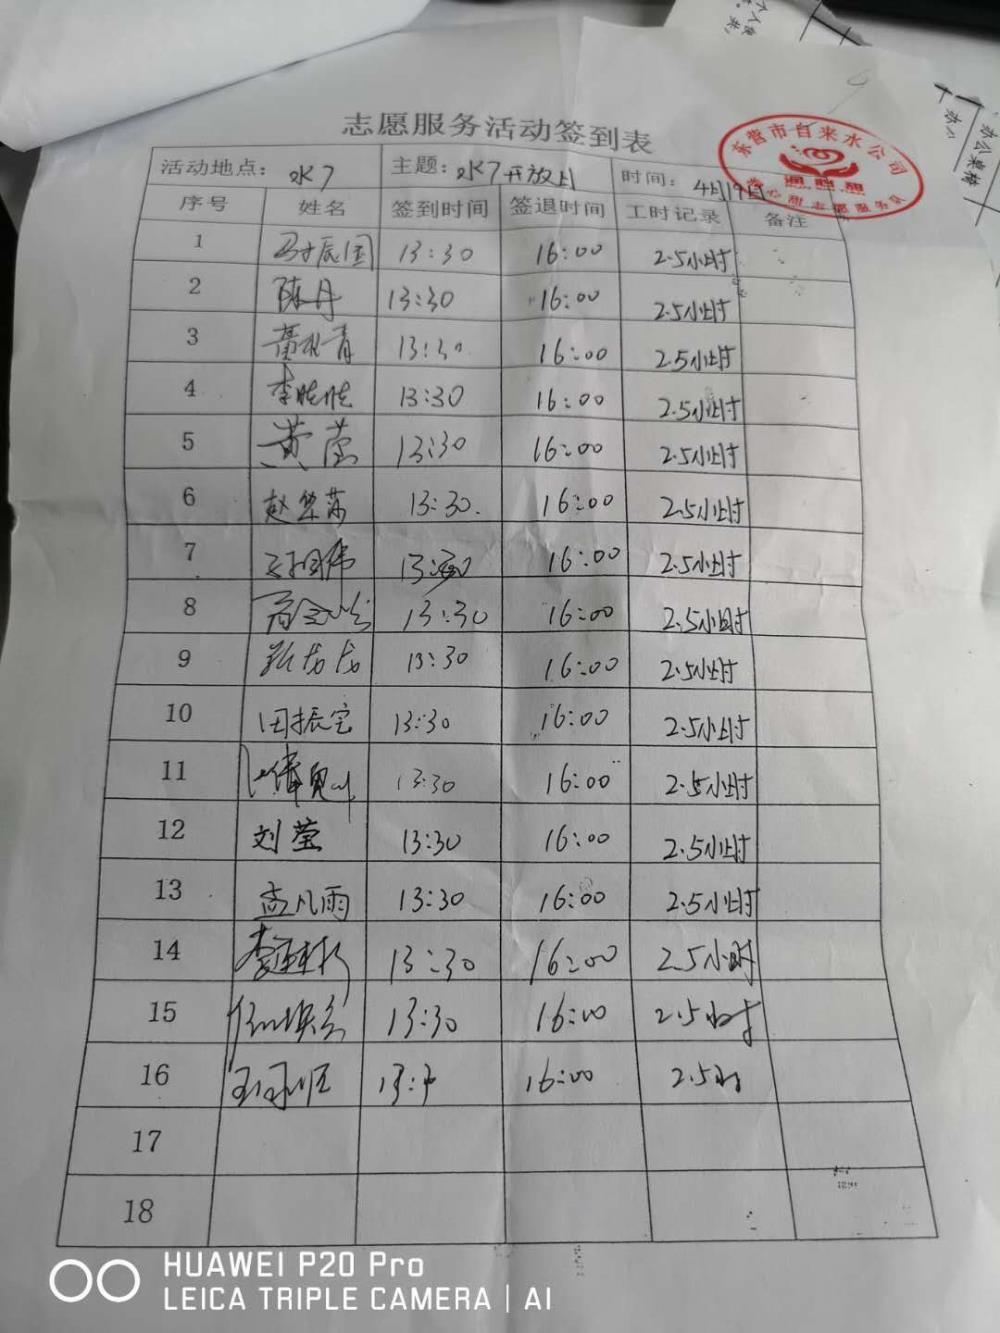 个人使
志愿服务活动签到表
东营市自来水公司
志愿服务队
活动地点: 水厂 主题: 水厂开放日 时间: 4月19日
序号 姓名 签到时间 签退时间 工时记录 备注
1 13:30 16:00 2.5小时
2 陈丹 13:30 16:00 2.5小时
3 13:30 16:00 2.5小时
4 李晓晓 13:30 16:00 2.5小时
5 黄莹 13:30 16:00 2.5小时
6 赵华莎 13:30. 16:00 2.5小时
7 13:30 16:00 2.5小时
8 13:30 16:00 2.5小时
9 13:30 16:00 2.5小时
10 田振宝 13:30 16:00 2.5小时
11 13:30 16:00 2.5小时
12 刘莹 13:30 16:00 2.5小时
13 孟凡雨 13:30 16:00 2.5小时
14 13:30 16:00 2.5小时
15 13:30 16:00 2.5小时
16 16:00
17
18
HUAWEI P20 Pro
LEICA TRIPLE CAMERA | AI